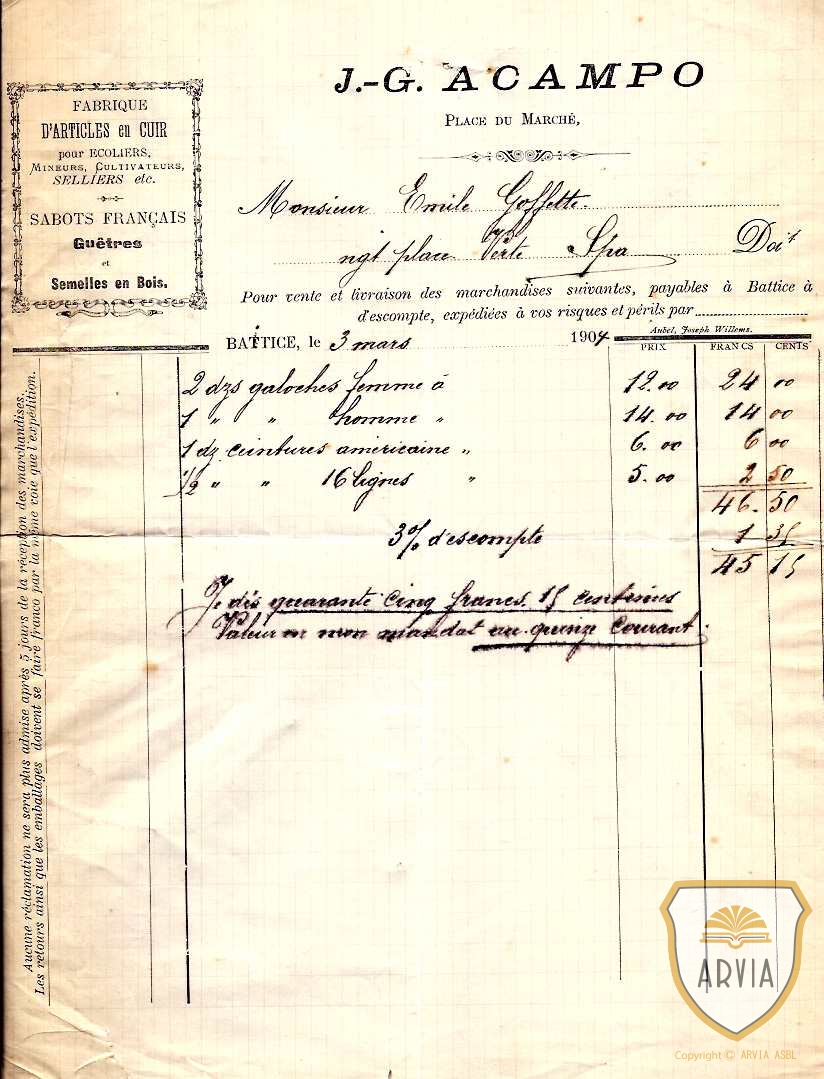 J.-G. ACAMPO
PLACE DU MARCHÉ,
FABRIQUE
D'ARTICLES en CUIR
pour ECOLIERS,
MINEURS, CULTIVATEURS,
SELLIERS etc.
SABOTS FRANÇAIS
Guêtres
et
Semelles en Bois.
Monsieur Emile Goffette
ngt place Verte Spa Doit
Pour vente et livraison des marchandises suivantes, payables à Battice à
d'escompte, expédiées à vos risques et périls par
Aubel, Joseph Willems.
BATTICE, le 3 mars 1904
PRIX FRANCS CENTS
2 dzs galoches femme à 12.00 24 00
1 " " homme " 14.00 14 00
1 dz ceintures américaine " 6.00 6 00
1/2 " " 16 lignes " 5.00 2 50
46.50
3% d'escompte 1 35
45 15
Je dis quarante cinq francs 15 centimes
Valeur en mon mandat au quinze courant.
Aucune réclamation ne sera plus admise après 5 jours de la réception des marchandises.
Les retours ainsi que les emballages doivent se faire franco par la même voie que l'expédition.
ARVIA
Copyright © ARVIA ASBL